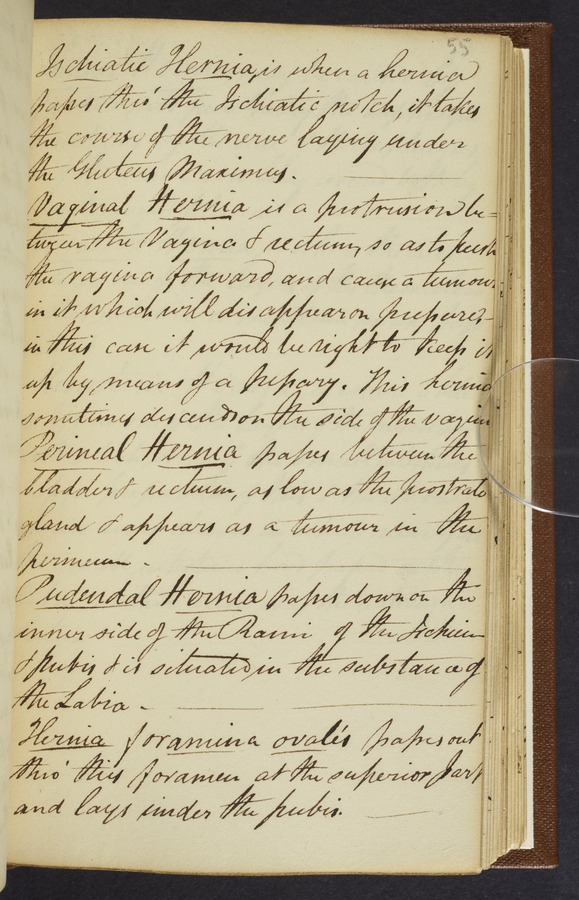 55
Ischiatic Hernia, is when a hernia
passes thro' the Ischiatic notch, it takes
the course of the nerve laying under
the Gluteus Maximus.
Vaginal Hernia is a protrusion be=
tween the Vagina & rectum, so as to push
the vagina forward, and cause a tumour
in it which will disappear on pressure,
in this case it would be right to keep it
up by means of a pessary. This hernia
sometimes descends on the side of the vagina
Perineal Hernia passes between the
bladder & rectum, as low as the prostrate
gland & appears as a tumour in the
perineum -
Pudendal Hernia passes down on the
inner side of the Rami of the Ischium
& pubis & is situated in the substance of
the Labia -
Hernia foramina ovalis passes out
thro' this foramen at the superior part
and lays under the pubis.